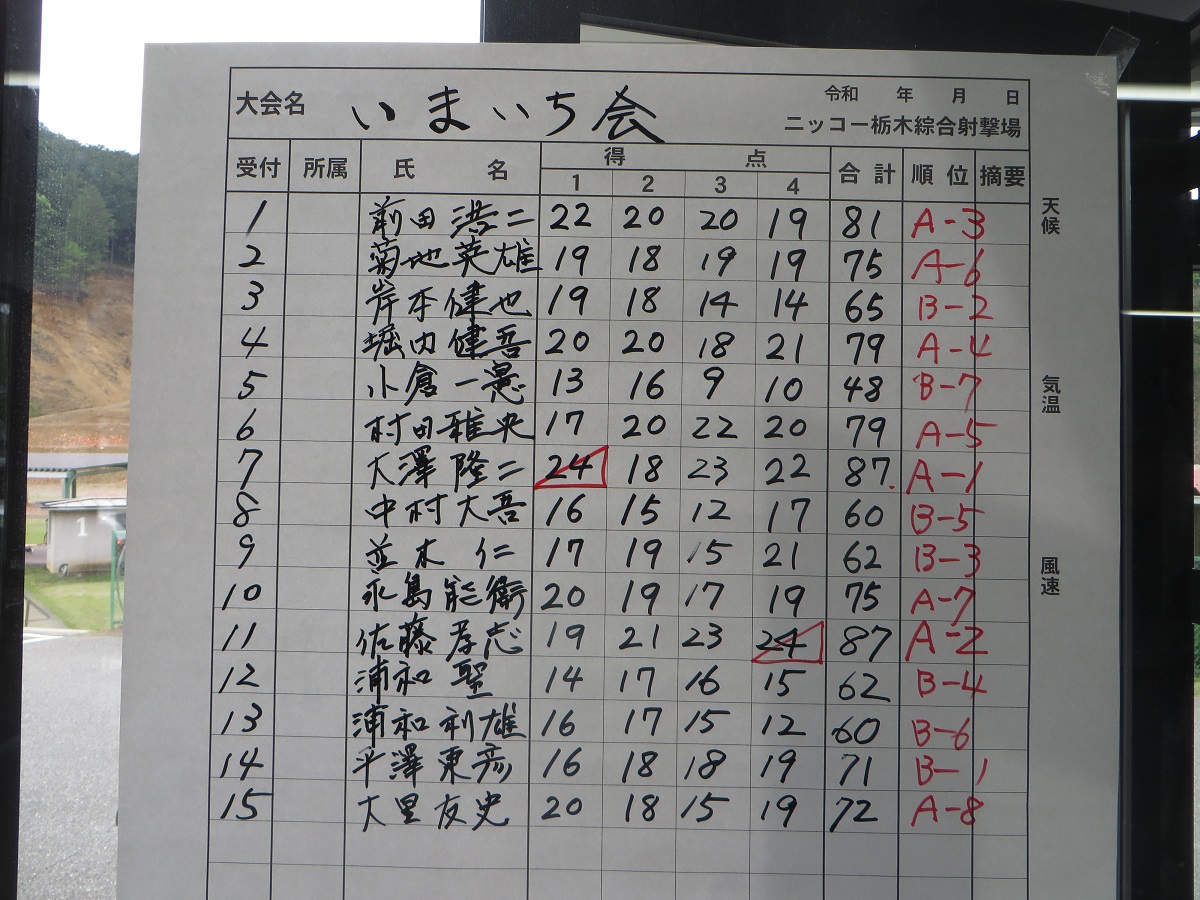 大会名 いまいち会 令和 年 月 日
ニッコー栃木綜合射撃場
受付 所属 氏 名 得 点 合計 順位 摘要
1 2 3 4
天候
1 前田浩二 22 20 20 19 81 A-3
2 菊地英雄 19 18 19 19 75 A-6
3 岸本健也 19 18 14 14 65 B-2
4 堀内健吾 20 20 18 21 79 A-4
気温
5 小倉一憲 13 16 9 10 48 B-7
6 村田雅央 17 20 22 20 79 A-5
7 大澤隆二 24 18 23 22 87. A-1
8 中村大吾 16 15 12 17 60 B-5
風速
9 並木仁 17 19 15 21 62 B-3
10 永島能衛 20 19 17 19 75 A-7
11 佐藤孝志 19 21 23 24 87 A-2
12 浦和聖 14 17 16 15 62 B-4
13 浦和利雄 16 17 15 12 60 B-6
14 平澤東彦 16 18 18 19 71 B-1
15 大里友史 20 18 15 19 72 A-8
1